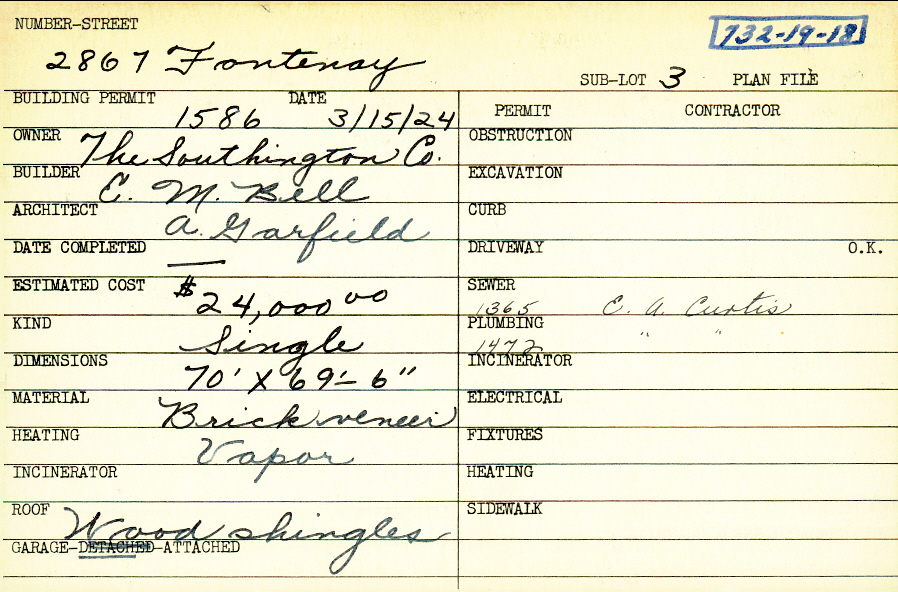 NUMBER-STREET
732-19-18
2867 Fontenay
SUB-LOT 3 PLAN FILE
BUILDING PERMIT 1586 DATE 3/15/24
PERMIT CONTRACTOR
OWNER The Southington Co.
OBSTRUCTION
BUILDER E. M. Bell
EXCAVATION
ARCHITECT A. Garfield
CURB
DATE COMPLETED —
DRIVEWAY O.K.
ESTIMATED COST $24,000 00
SEWER 1365 E. A. Curtis
KIND Single
PLUMBING 1472 " "
DIMENSIONS 70' X 69'-6"
INCINERATOR
MATERIAL Brick veneer
ELECTRICAL
HEATING Vapor
FIXTURES
INCINERATOR
HEATING
ROOF Wood shingles
SIDEWALK
GARAGE-DETACHED-ATTACHED